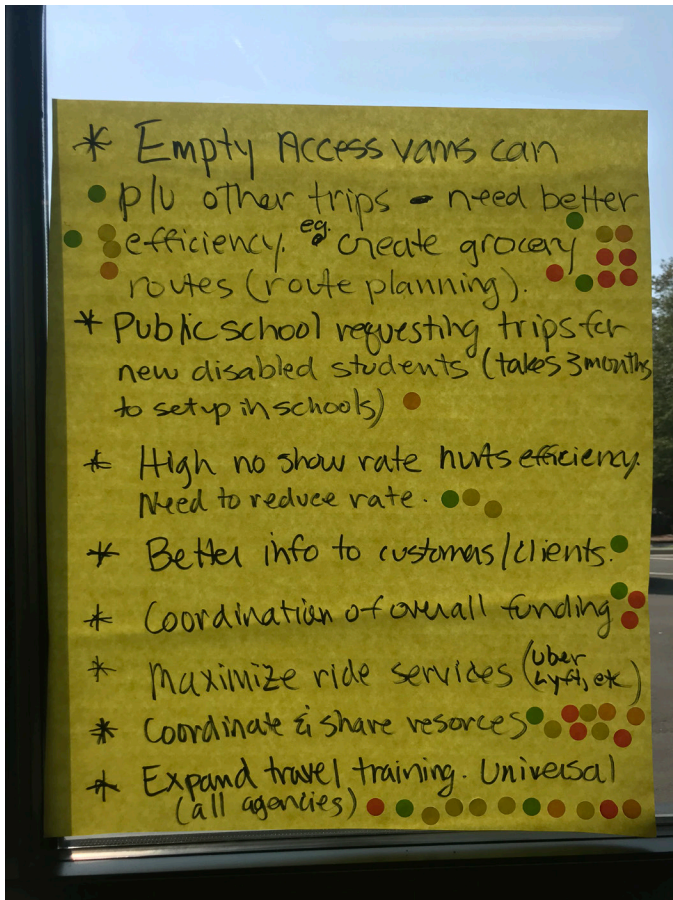 * Empty Access vans can
p/u other trips - need better
efficiency. eg. create grocery
routes (route planning).
* Public school requesting trips for
new disabled students (takes 3 months
to setup in schools)
* High no show rate hurts efficiency.
Need to reduce rate.
* Better info to customers/clients.
* Coordination of overall funding
* Maximize ride services (Uber
Lyft, etc)
* Coordinate & share resorces
* Expand travel training. Universal
(all agencies)